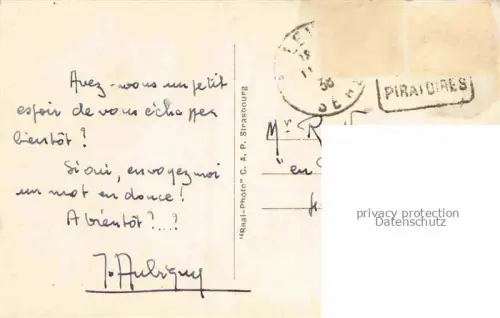 Avez-vous un petit
espoir de vous échapper
bientôt ?
Si oui, envoyez moi
un mot en douce !
A bientôt ?...?
J. Aubigny
"Real-Photo" C. A. P. Strasbourg
38
Mr
"en
privacy protection
Datenschutz